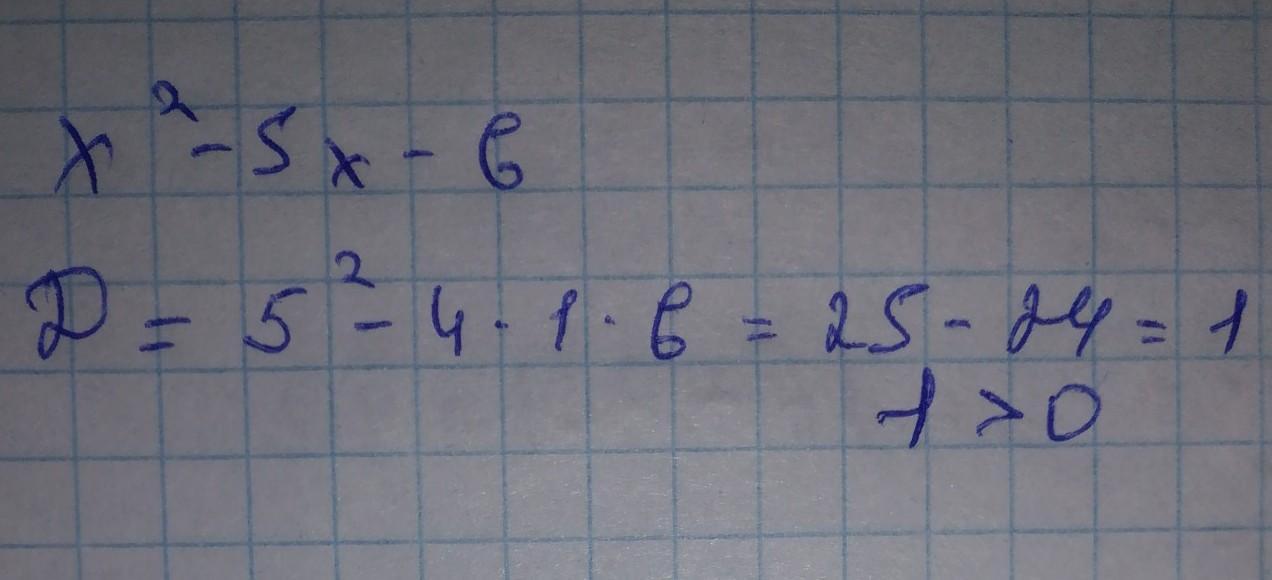 x² - 5x - 6
D = 5² - 4 · 1 · 6 = 25 - 24 = 1
1 > 0